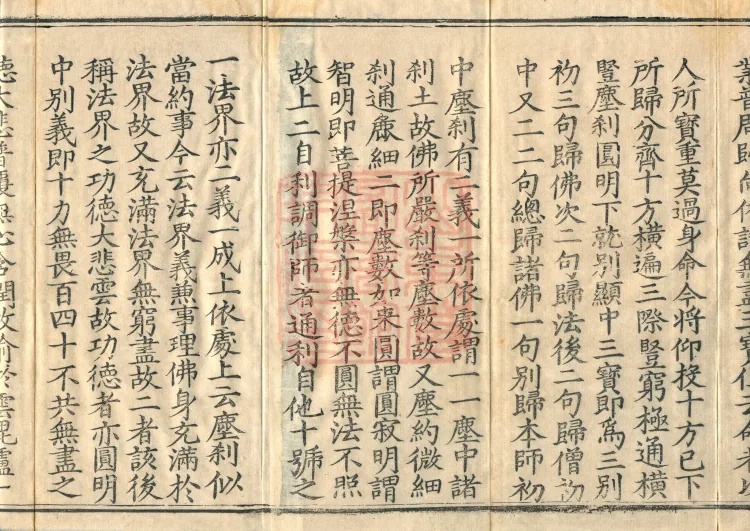 人所寶重莫過身命今將仰投十方已下
所歸分齊十方橫遍三際豎窮極通橫
豎塵剎圓明下就別顯中三寶即爲三別
初三句歸佛次二句歸法後二句歸僧初
中又二二句總歸諸佛一句別歸本師初
中塵剎有二義一所依處謂一一塵中諸
剎土故佛所嚴剎等塵數故又塵約微細
剎通麁細二即塵數如来圓謂圓寂明謂
智明即菩提涅槃亦無德不圓無法不照
故上二自利調御師者通利自他十號之
一法界亦二義一成上依處上云塵剎似
當約事今云法界義兼事理佛身充滿於
法界故又充滿法界無窮盡故二者該後
稱法界之功德大悲雲故功德者亦圓明
中別義即十力無畏百四十不共無盡之
德大悲普覆無心含潤故喻於雲毘盧